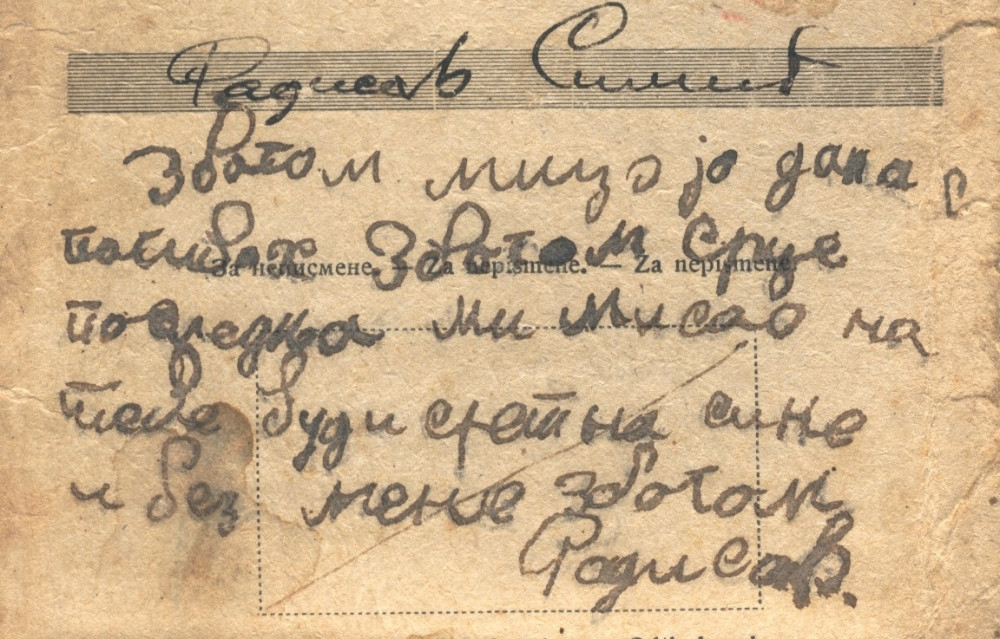 Радисав Симић
Збогом мицо ја дана с
погибох Збогом Срце
За неписмене. — Za nepismene. — Za nepismene.
последња ми мисао на
тебе буди сретна сине
и без мене збогом
Радисав.